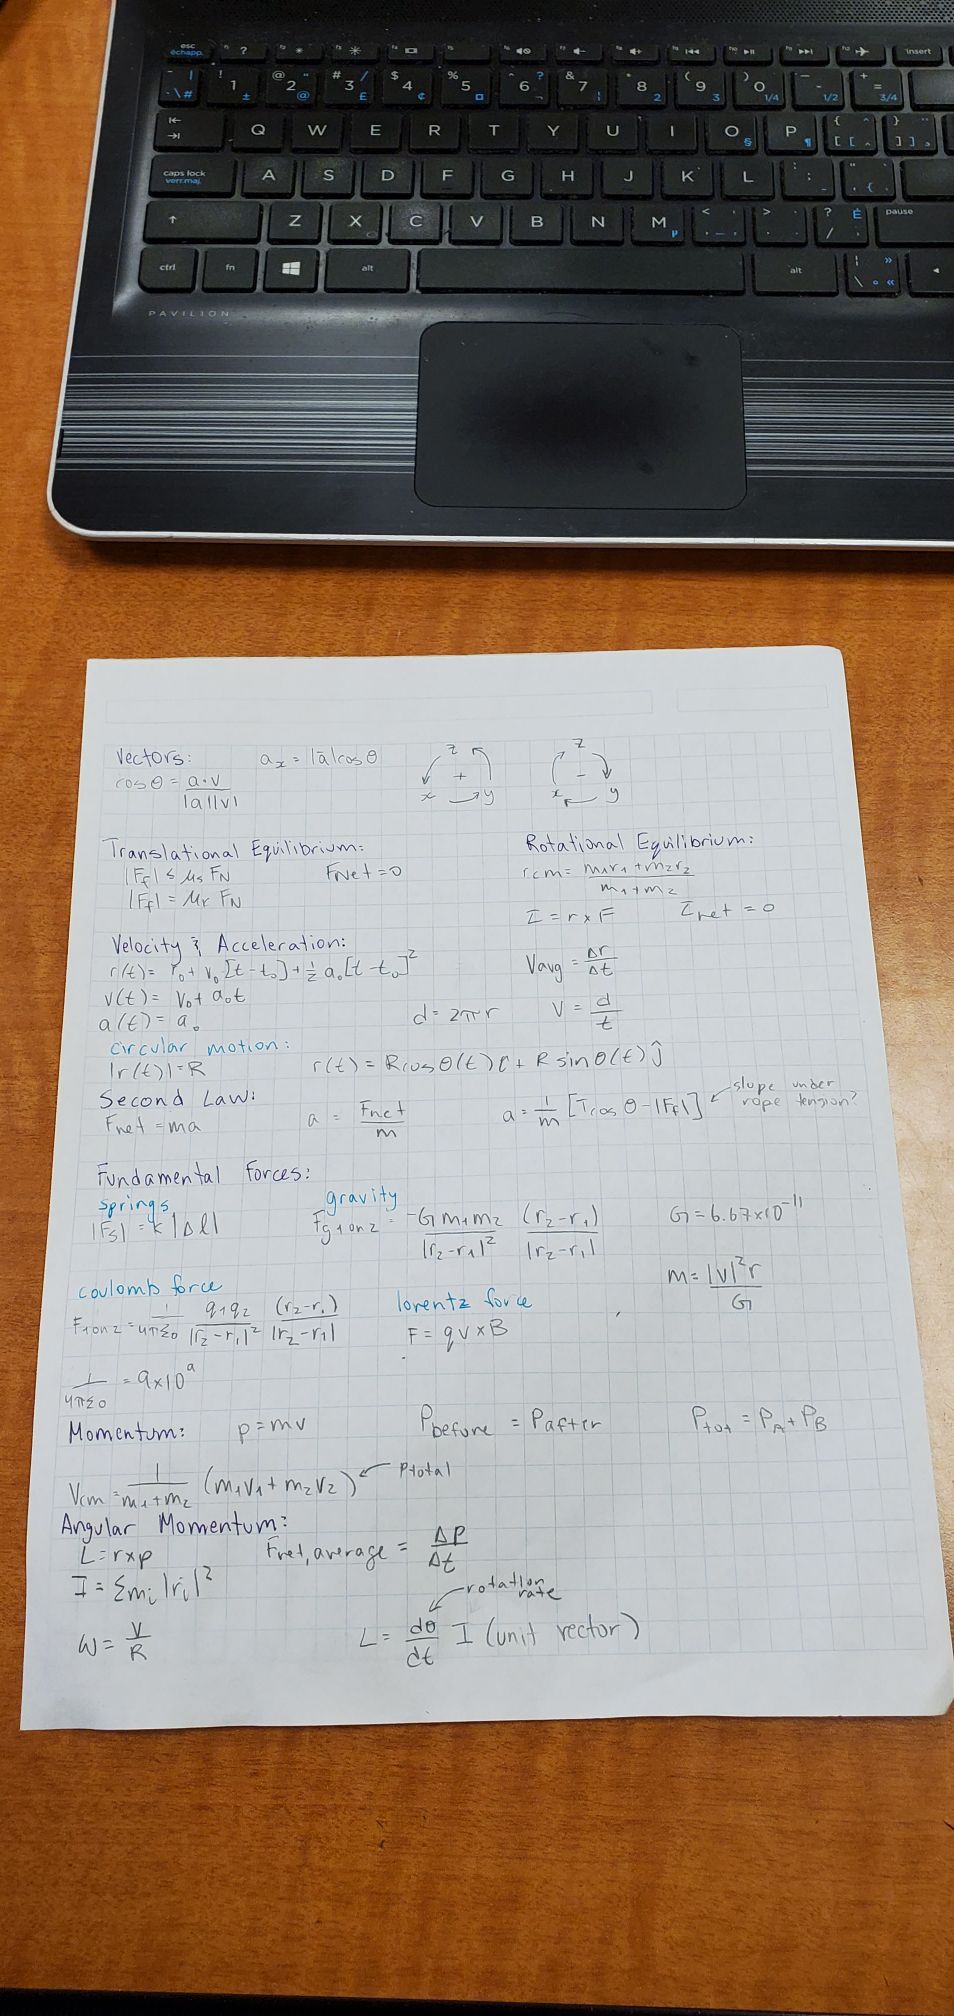 esc
échapp.
?
insert
! 1 ±
@ 2 " @
# 3 / £
$ 4 ¢
% 5
^ 6 ? ¬
& 7 ¦
* 8 2
( 9 3
) 0 1/4
- 1/2
+ = 3/4
Q W E R T Y U I O § P ¶ { [ [ ^ } ] ]
caps lock
verr.maj.
A S D F G H J K L : ; " , {
Z X C V B N M µ < ' > . ? É / pause
ctrl fn alt alt \ » « °
PAVILION
Vectors: a_x = |a̅|cosθ z + x y z - x y
cosθ = a·v / |a||v|
Translational Equilibrium: Rotational Equilibrium:
|F_f| ≤ μ_s F_N F_Net = 0 r_cm = m_1r_1 + m_2r_2 / m_1 + m_2
|F_f| = μ_k F_N
τ = r x F τ_net = 0
Velocity & Acceleration:
r(t) = r_0 + v_0[t-t_0] + 1/2 a_0[t-t_0]² V_avg = Δr/Δt
v(t) = v_0 + a_0t
a(t) = a_0 d = 2πr v = d/t
circular motion:
|r(t)| = R r(t) = Rcosθ(t)î + R sinθ(t)ĵ
Second Law:
F_net = ma a = F_net/m a = 1/m [Tcosθ - |F_f|] slope under
rope tension?
Fundamental Forces:
springs gravity
|F_s| = k|Δl| F_g1on2 = -G m_1m_2 / |r_2-r_1|² (r_2-r_1) / |r_2-r_1| G = 6.67x10^-11
m = |v|²r / G
coulomb force lorentz force
F_1on2 = 1/4πε_0 q_1q_2 / |r_2-r_1|² (r_2-r_1) / |r_2-r_1| F = qv x B
1/4πε_0 = 9x10^9
Momentum: p = mv P_before = P_after P_tot = P_A + P_B
V_cm = 1 / m_1+m_2 (m_1v_1 + m_2v_2) Ptotal
Angular Momentum:
L = r x p F_net, average = ΔP/Δt
I = Σm_i|r_i|² rotation
rate
ω = v/R L = dθ/dt I (unit vector)